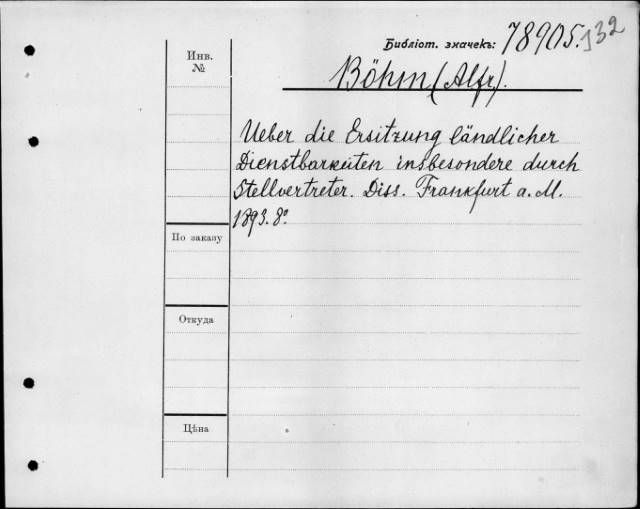 Библіот. значекъ: 78905.
132
Инв. №
Böhm, (Alfr).
Ueber die Ersitzung ländlicher
Dienstbarkeiten insbesondere durch
Stellvertreter. Diss. Frankfurt a. M.
1893. 8º.
По заказу
Откуда
Цѣна